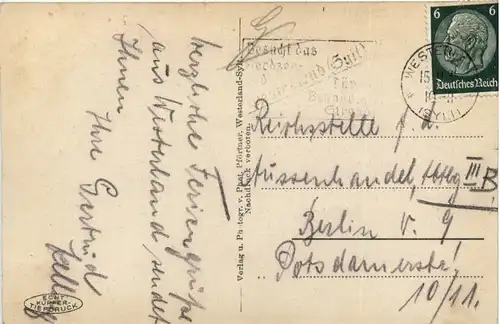 herzliche Feriengrüße
aus Westerland sendet
Ihnen
Ihre Gertrud
ECHT
KUPFER-
TIEFDRUCK
Verlag u. Photogr. v. Phot. Pförtner, Westerland-Sylt.
Nachdruck verboten.
Besucht das
Nordsee
Westerland (Sylt)
Für
6 6
Deutsches Reich
WESTERLAND
15
(SYLT)
Reichsstelle f. d.
Aussenhandel, Abtlg III B
Berlin W. 9
Potsdamerstr.
10/11.